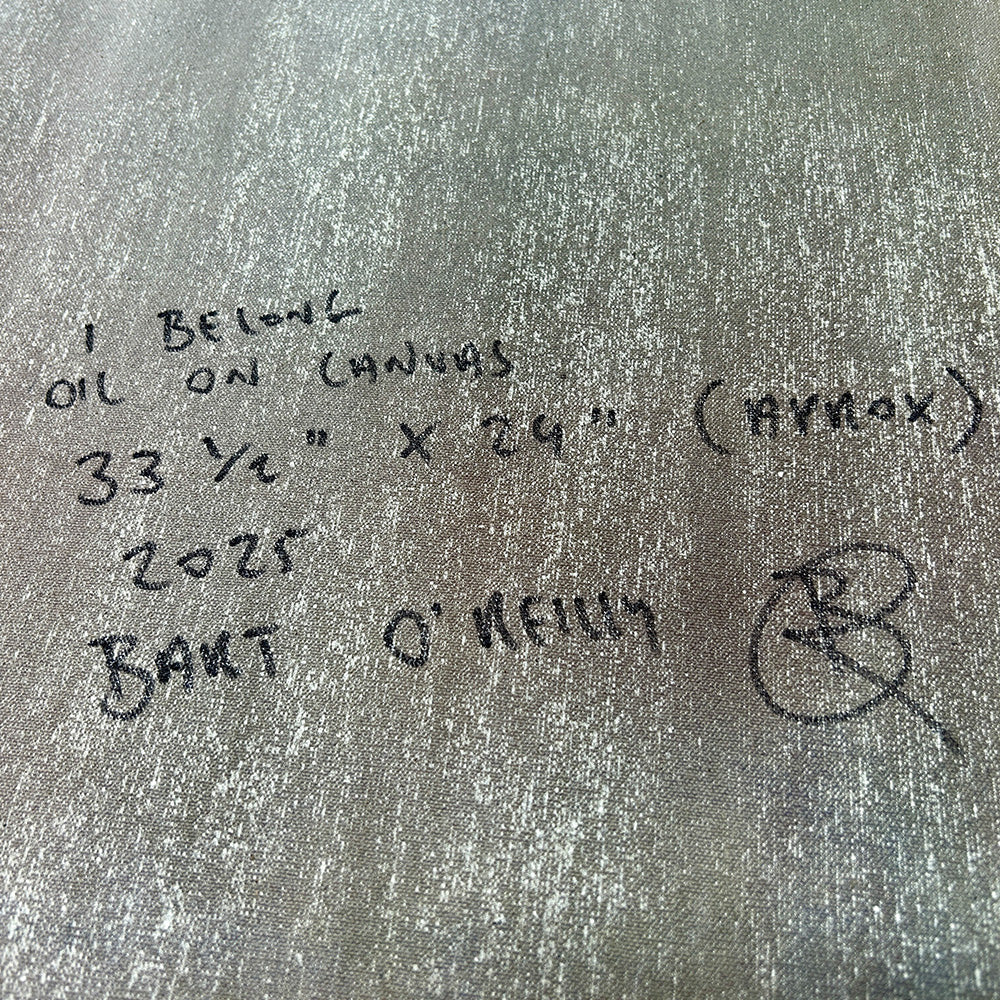 I BELONG
OIL ON CANVAS
33 1/2" X 24" (APROX)
2025
BART O'REILLY